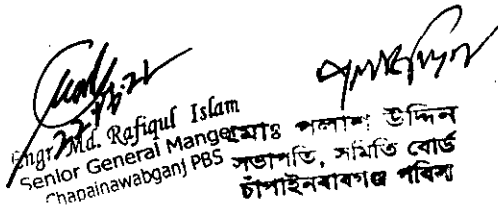 Engr. Md. Rafiqul Islam
Senior General Manger
Chapainawabganj PBS
মোঃ পলাশ উদ্দিন
সভাপতি, সমিতি বোর্ড
চাঁপাইনবাবগঞ্জ পবিস